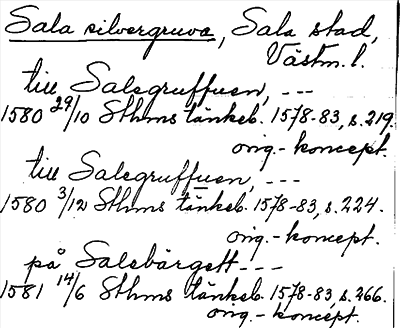 Sala silvergruva, Sala stad,
Västm.l.
till Salegruffuen, ---
1580 29/10 Sthms tänkeb. 1578-83, s. 219.
orig.-koncept.
till Salegruffuen, ---
1580 3/12 Sthms tänkeb. 1578-83, s. 224.
orig.-koncept.
på Salebärgett ---
1581 14/6 Sthms tänkeb. 1578-83, s. 266.
orig.-koncept.